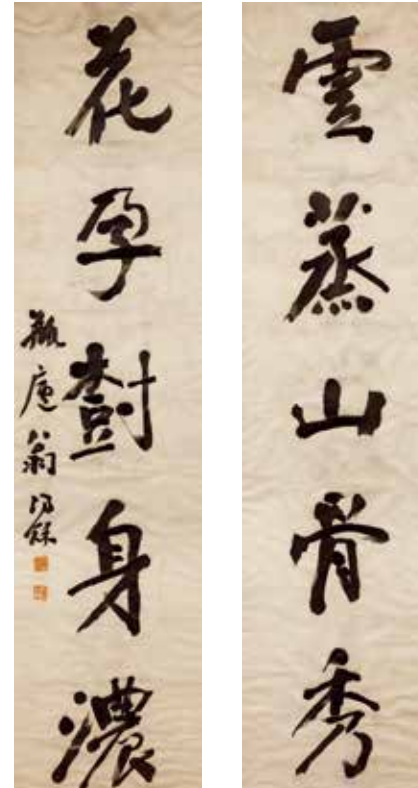 雲蒸山骨秀
花孕樹身濃
瓶廬翁同龢